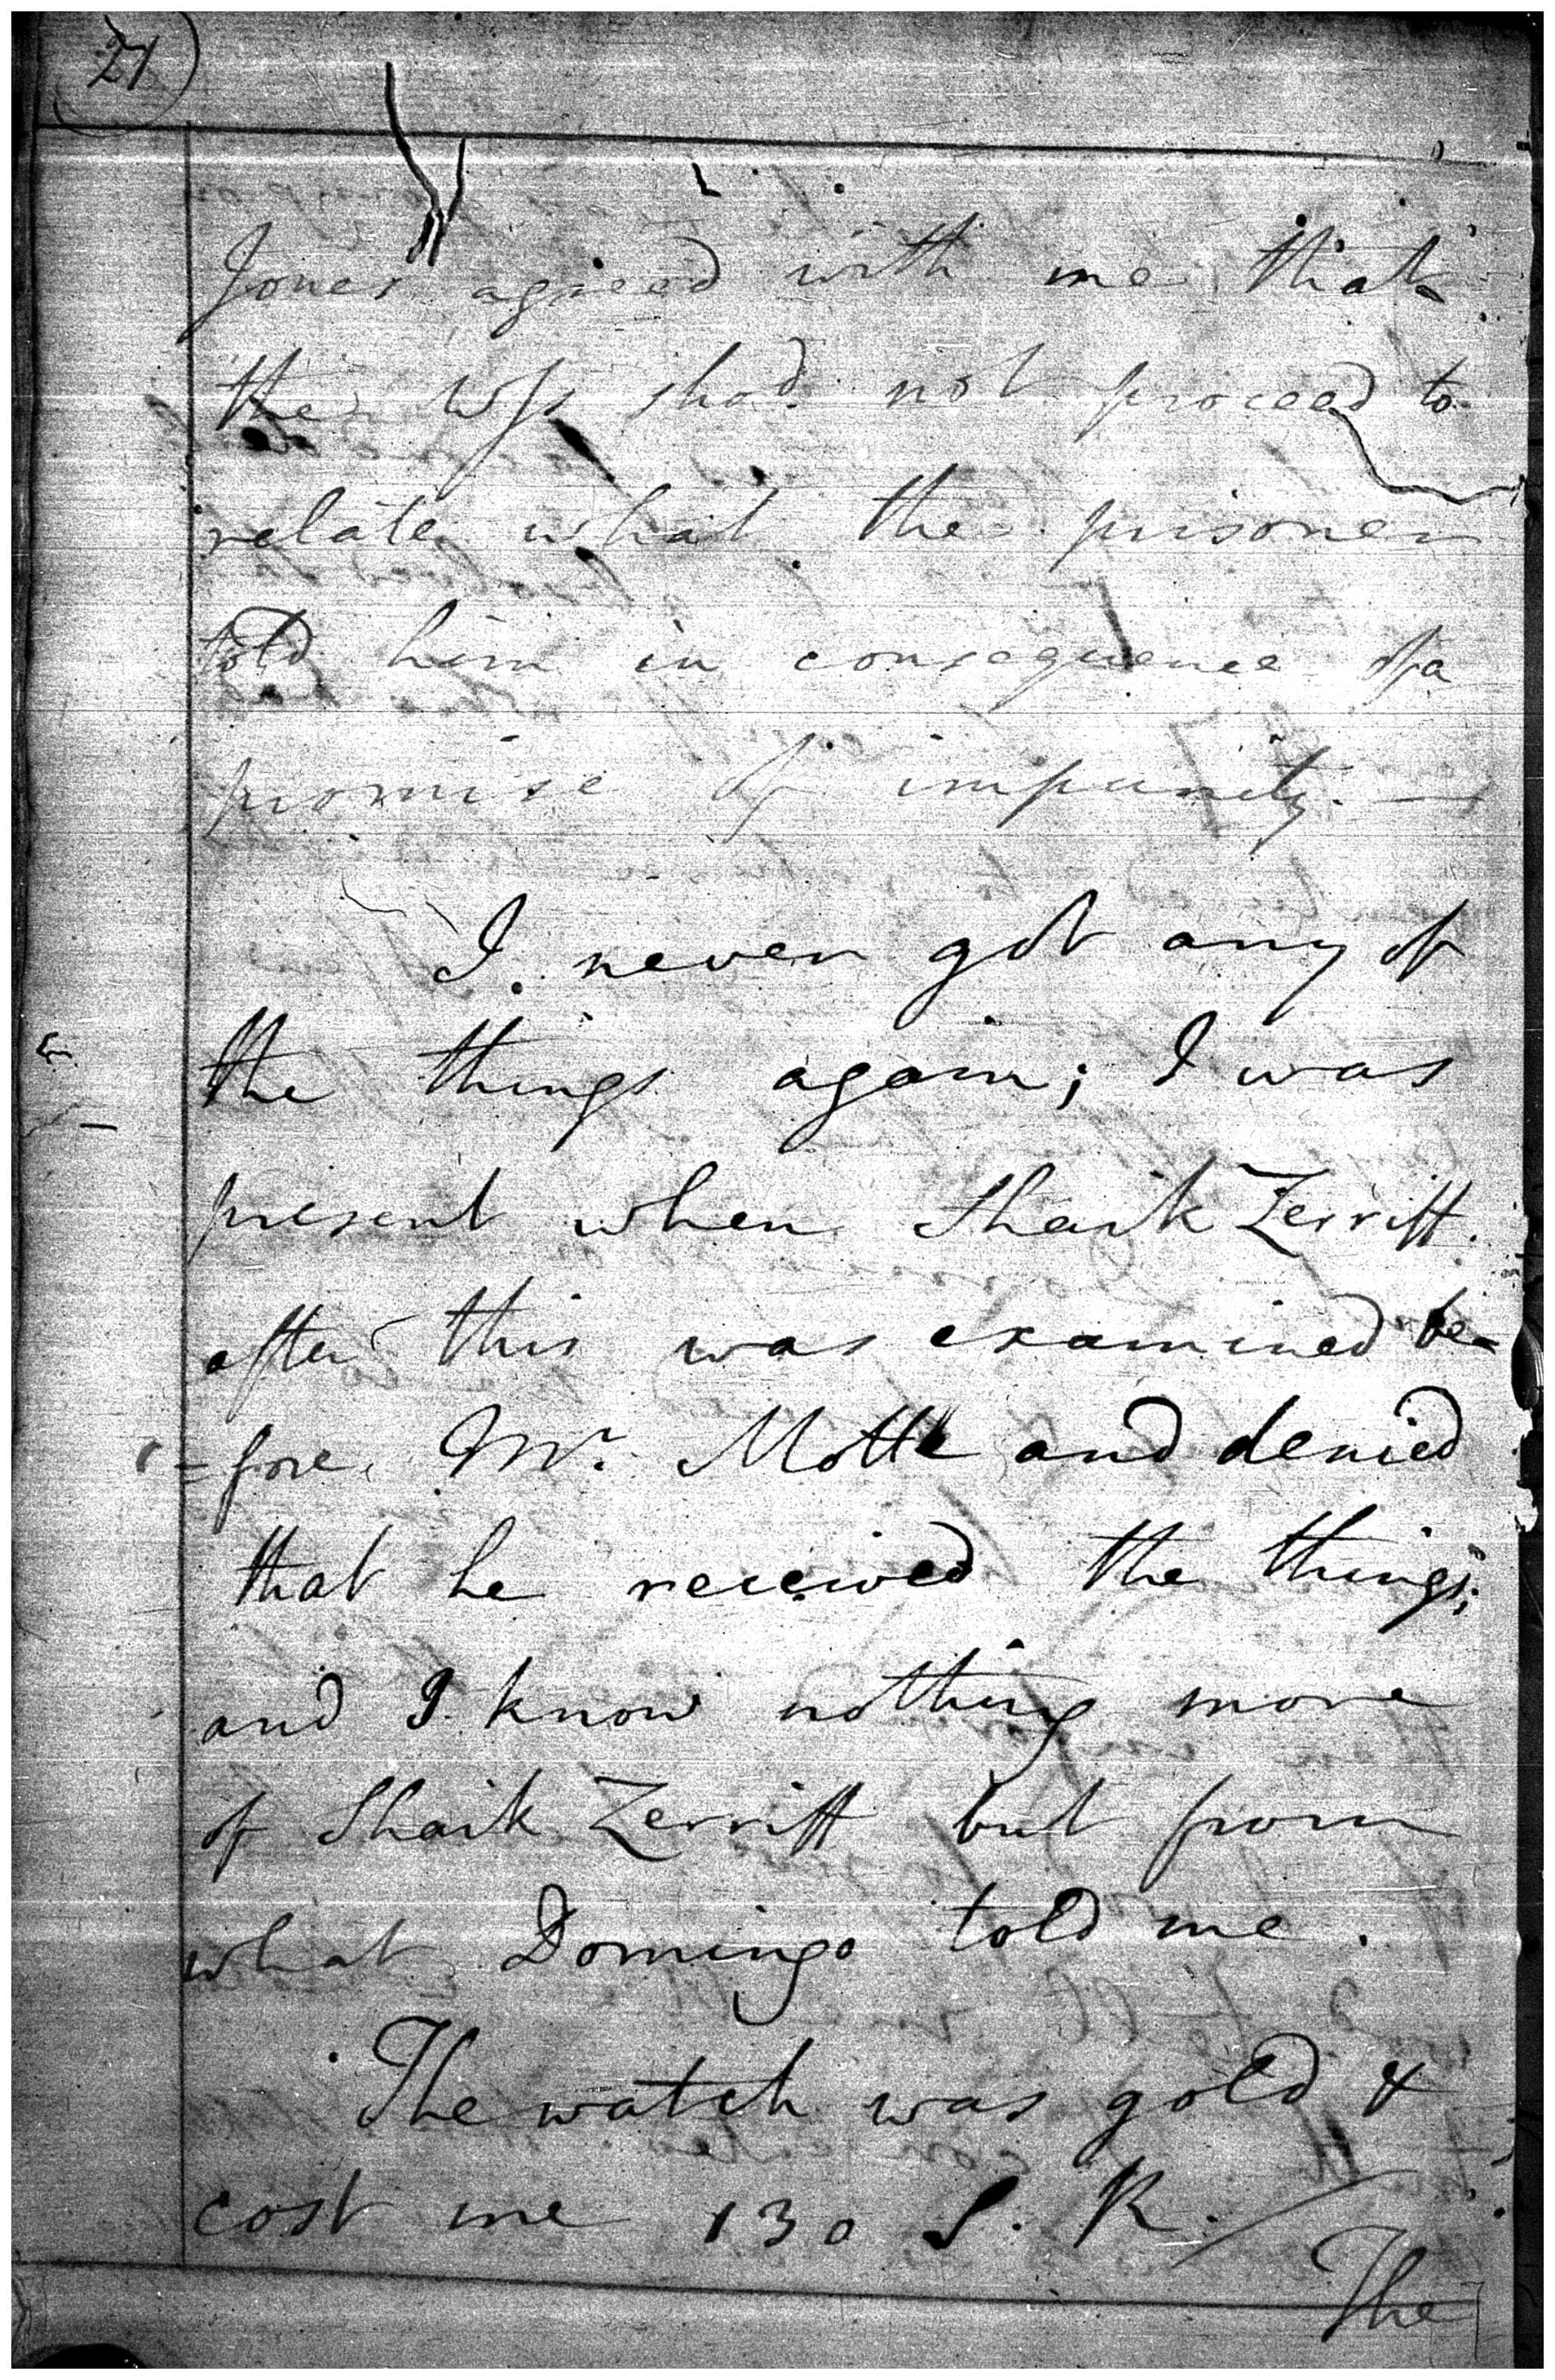 21
Jones agreed with me that
the Wss shod. not proceed to
relate what the prisoner
told him in consequence of a
promise of impunity. —
I never got any of
the things again; I was
present when Shaik Zerriff
after this was examined be-
=fore Mr. Motte and denied
that he received the things;
and I know nothing more
of Shaik Zerriff but from
what Domingo told me.
The watch was gold &
cost me 130 S. R.
The